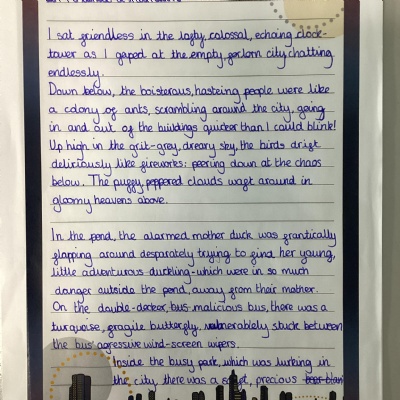 I sat friendless in the lofty, colossal, echoing clock-
tower as I gaped at the empty forlorn city chatting
endlessly.
Down below, the boisterous, hasteing people were like
a colony of ants, scrambling around the city, going
in and out of the buildings quicker than I could blink!
Up high in the grit-grey, dreary sky, the birds drift
deliriously like fireworks: peering down at the chaos
below. The puffy, peppered clouds waft around in
gloomy heavens above.
In the pond, the alarmed mother duck was frantically
flapping around desparately trying to find her young,
little adventurous duckling-which were in so much
danger outside the pond, away from their mother.
On the double-decker, bus malicious bus, there was a
turquoise, fragile butterfly, vulnerably stuck between
the bus' agressive wind-screen wipers.
Inside the busy park, which was lurking in
the city, there was a soft, precious